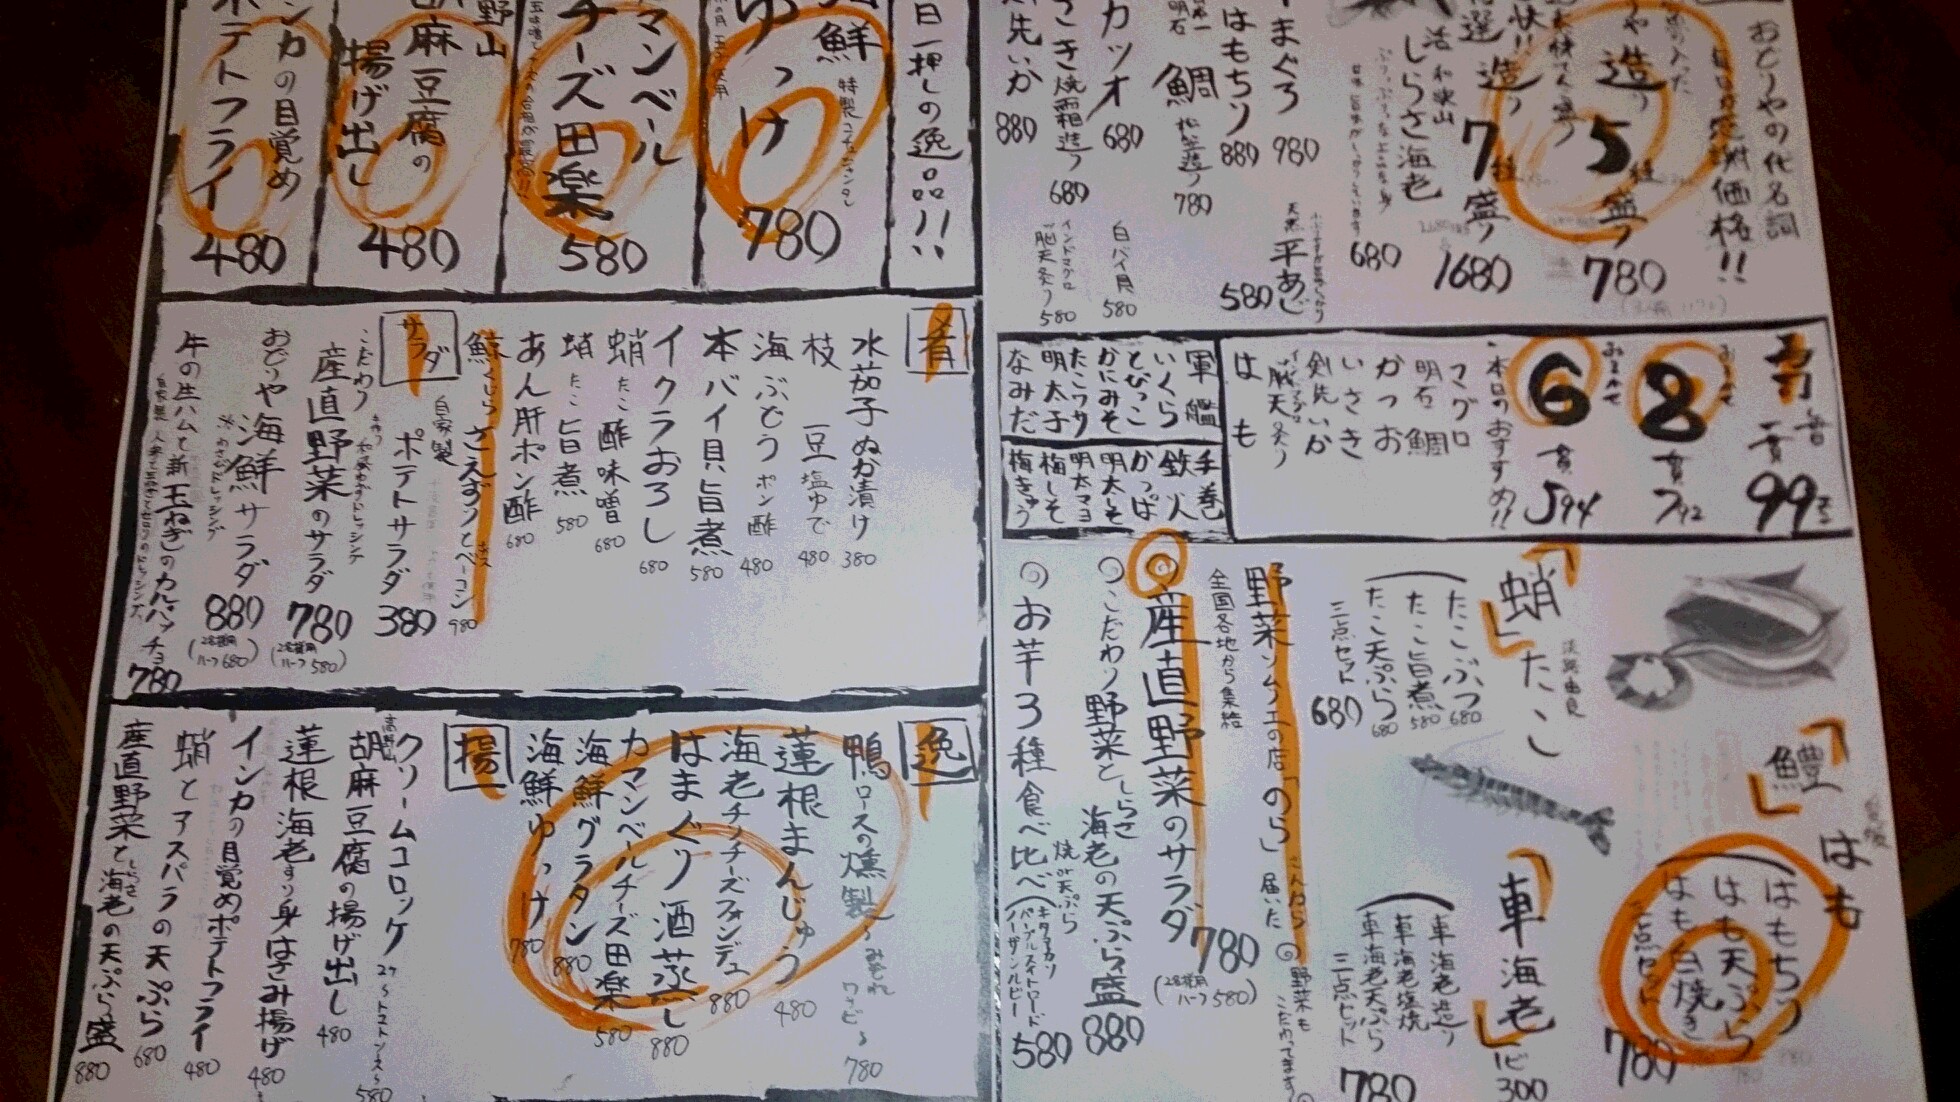 おどりやの代名詞
価格!!
造り
5種盛り
780
造り
7種盛り
1680
活 和歌山
しらさ海老
680
まぐろ
980
天然 平あじ
580
はもちり
880
明石
鯛
松笠造り
780
カツオ
680
白バイ貝
580
焼霜造り
680
インドマグロ
脳天炙り
580
剣先いか
880
一押しの逸品!!
海鮮
ゆっけ
780
カマンベール
チーズ田楽
580
胡麻豆腐の
揚げ出し
480
インカの目覚め
ポテトフライ
480
寿司
一貫
99
おまかせ
8貫
792
おまかせ
6貫
594
本日のおすすめ!!
マグロ
明石鯛
かつお
いさき
剣先いか
インドマグロ
脳天炙り
はも
軍艦
いくら
とびっこ
かにみそ
たこワサ
明太子
なみだ
手巻
鉄火
かっぱ
明太しそ
明太マヨ
梅しそ
梅きゅう
肴
水茄子ぬか漬け
380
枝豆 塩ゆで
480
海ぶどうポン酢
480
本バイ貝旨煮
580
イクラおろし
680
蛸 たこ 酢味噌
680
蛸 たこ 旨煮
580
あん肝ポン酢
680
鯨くじら さえずりとベーコン
980
サラダ
自家製
ポテトサラダ
380
こだわり
産直野菜のサラダ
780
(2名様用
ハーフ580)
おどりや海鮮サラダ
※わさびドレッシング
880
(2名様用
ハーフ680)
牛の生ハムと新玉ねぎのカルパッチョ
780
「蛸」たこ
淡路由良
たこぶつ
680
たこ旨煮
580
たこ天ぷら
680
三点セット
680
「鱧」はも
はもちり
はも天ぷら
はも白焼き
三点セット
780
「車海老」
1匹
300
車海老造り
車海老塩焼
車海老天ぷら
三点セット
780
野菜ソムリエの店「のら」こんから届いた
◎野菜もこだわってます◎
全国各地から集結
◎産直野菜のサラダ
780
(2名様用
ハーフ580)
◎こだわり野菜としらさ海老の天ぷら盛
880
◎お芋3種食べ比べ
焼or天ぷら
キタアカリ
パープルスイートロード
ノーザンルビー
580
逸
鴨ロースの燻製
780
蓮根まんじゅう
480
海老チリチーズフォンデュ
880
はまぐり酒蒸し
880
カマンベールチーズ田楽
580
海鮮グラタン
880
海鮮ゆっけ
780
揚
クリームコロッケ
580
高野山
胡麻豆腐の揚げ出し
480
蓮根海老すり身はさみ揚げ
480
インカの目覚めポテトフライ
480
蛸とアスパラの天ぷら
680
産直野菜としらさ海老の天ぷら盛
880